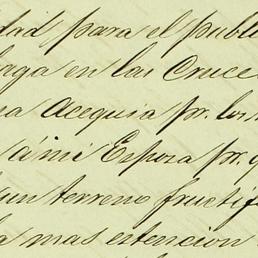 dad para el publi
onga en las Cruce
na Acequia pr. los
á mi Esposa pr. q
un terreno fructif
a mas estencion